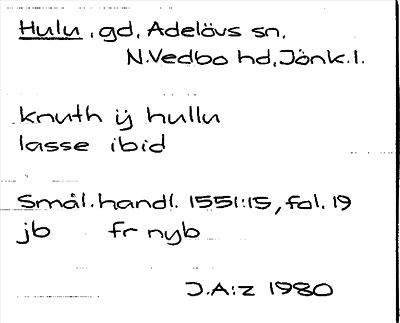 Hulu, gd, Adelövs sn,
N.Vedbo hd, Jönk.l.
knuth ij hullu
lasse ibid
Smål.handl. 1551:15, fol. 19
jb fr nyb
J.A:z 1980